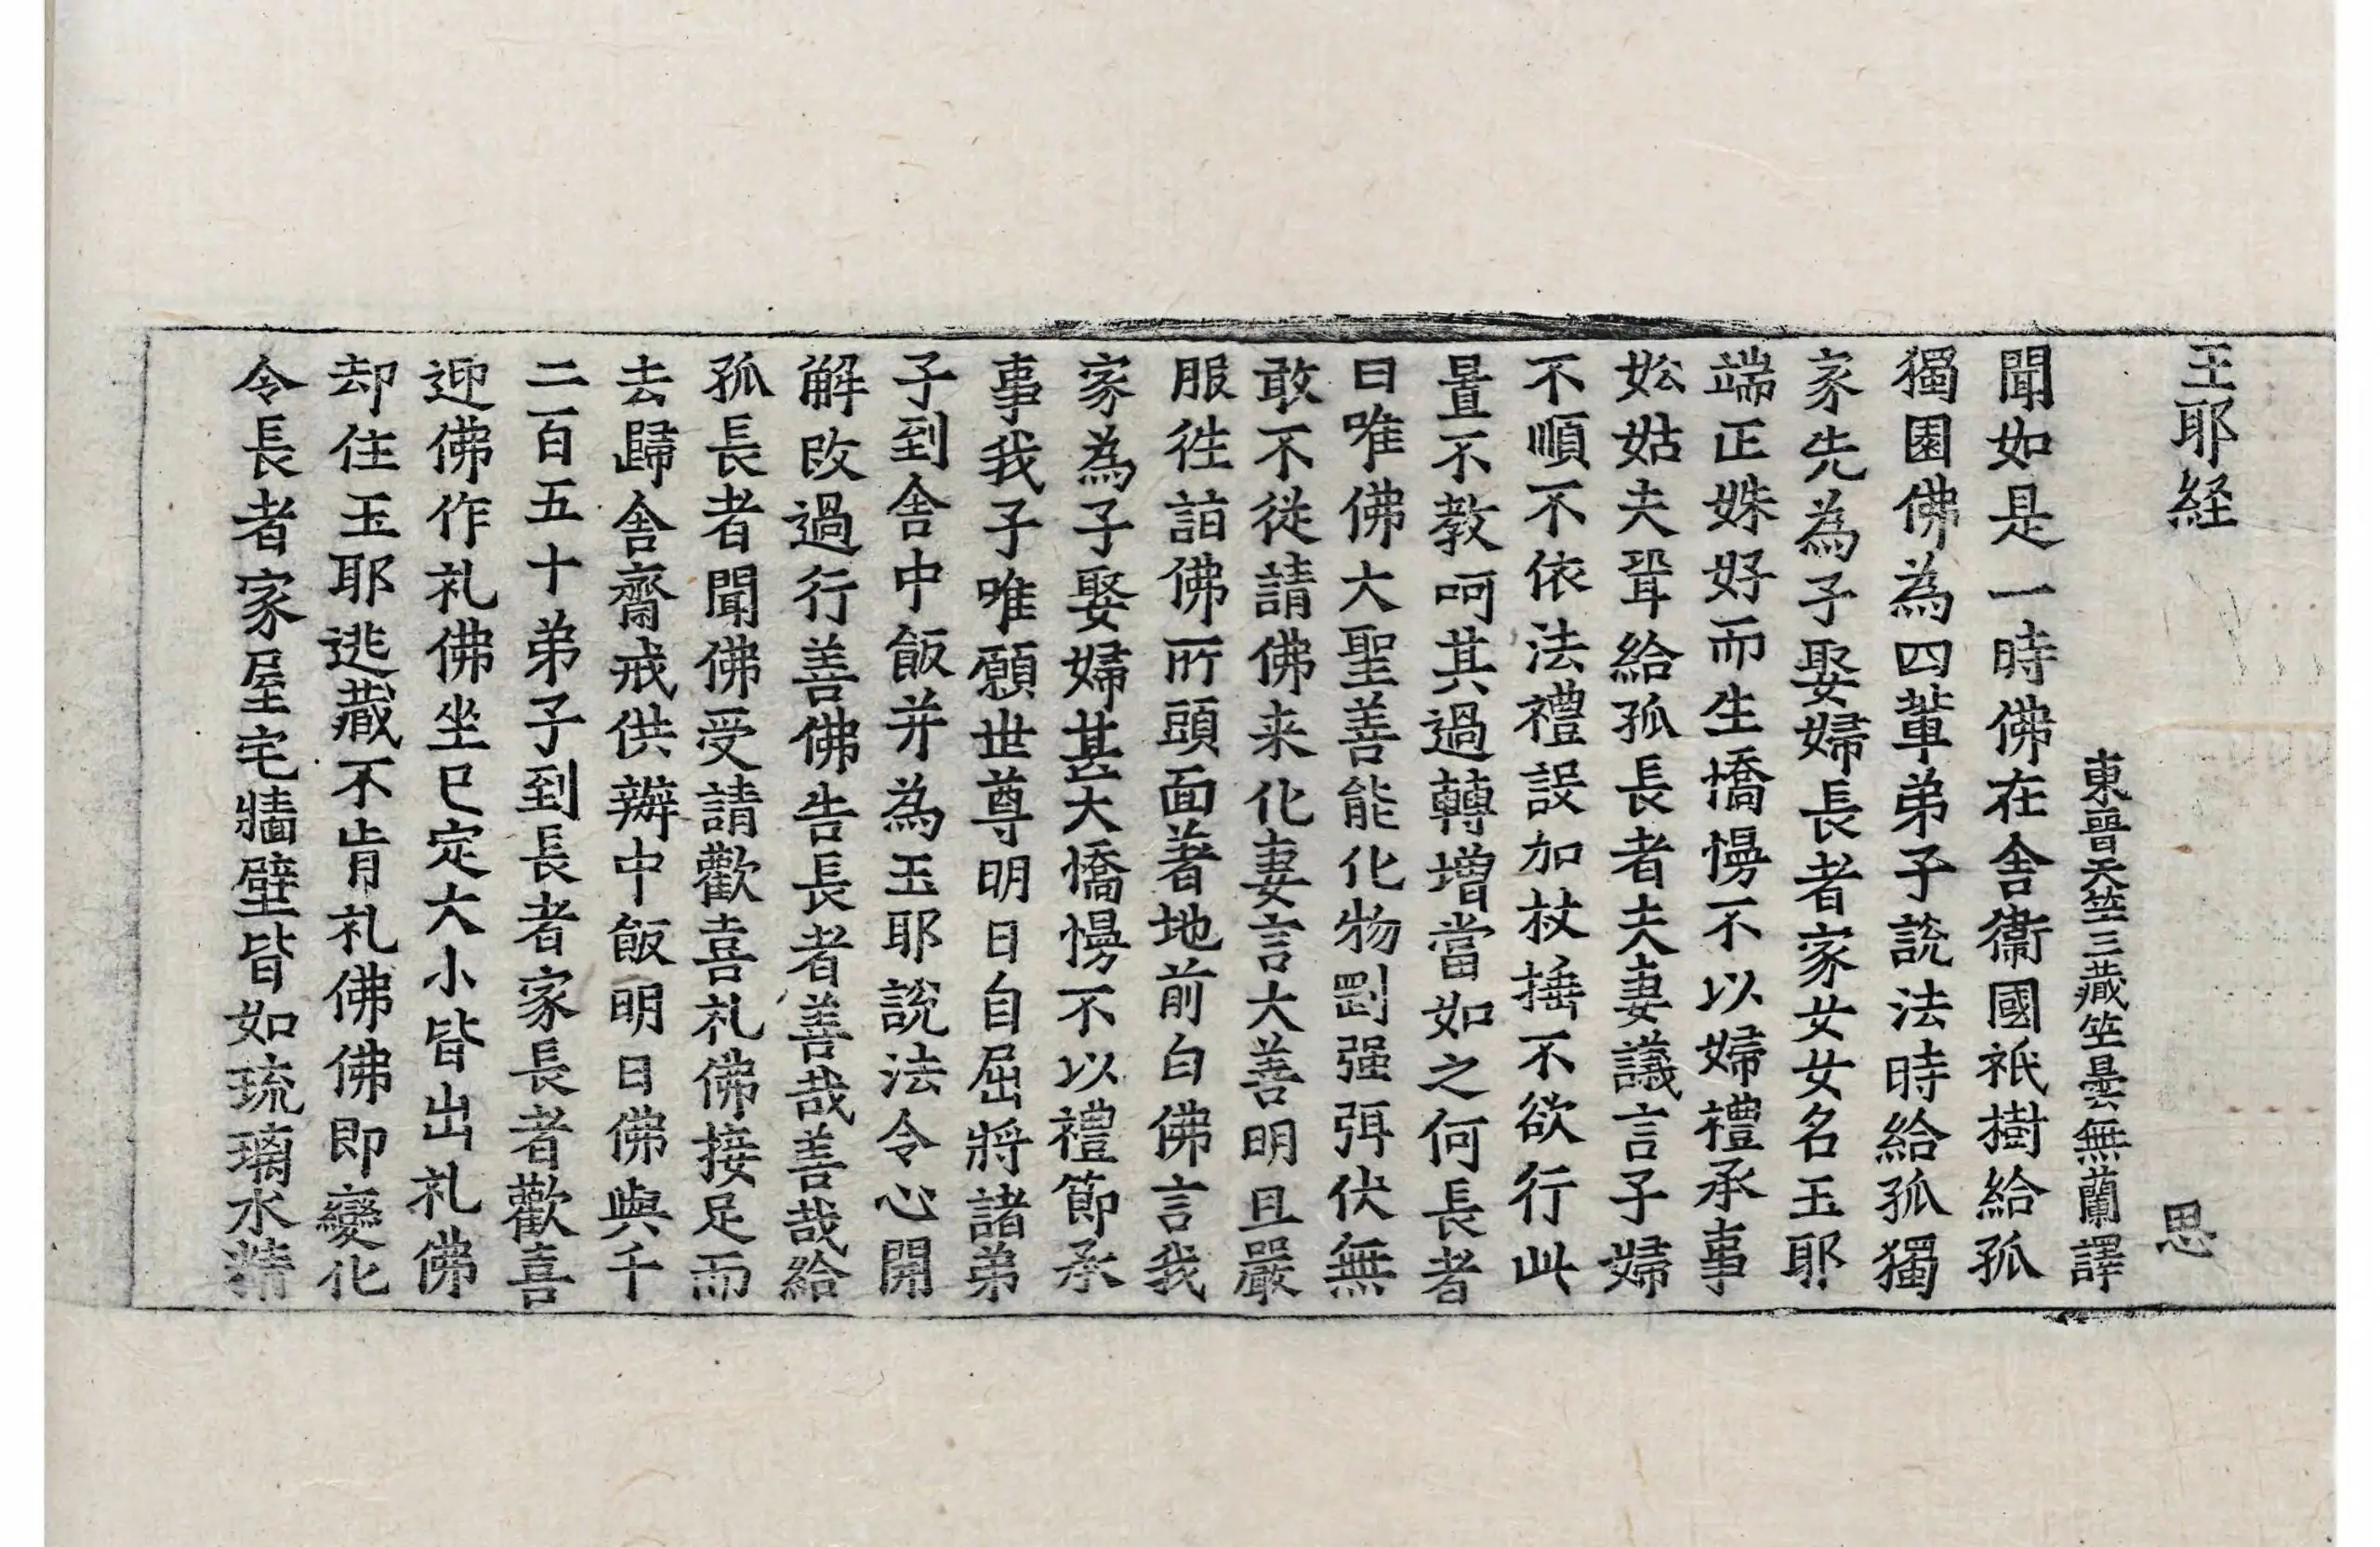 玉耶経 思
東晉天竺三藏竺曇無蘭譯
聞如是一時佛在舍衞國祇樹給孤
獨園佛為四輩弟子說法時給孤獨
家先為子娶婦長者家女女名玉耶
端正姝好而生憍慢不以婦禮承事
妐姑夫聟給孤長者夫妻議言子婦
不順不依法禮設加杖捶不欲行此
置不教呵其過轉增當如之何長者
曰唯佛大聖善能化物剛强弭伏無
敢不從請佛来化妻言大善明旦嚴
服徃詣佛所頭面著地前白佛言我
家為子娶婦甚大憍慢不以禮節承
事我子唯願世尊明日自屈將諸弟
子到舍中飯并為玉耶說法令心開
解改過行善佛告長者善哉善哉給
孤長者聞佛受請歡喜礼佛接足而
去歸舍齋戒供辦中飯明日佛與千
二百五十弟子到長者家長者歡喜
迎佛作礼佛坐已定大小皆出礼佛
却住玉耶逃藏不肯礼佛佛即變化
令長者家屋宅牆壁皆如琉璃水精